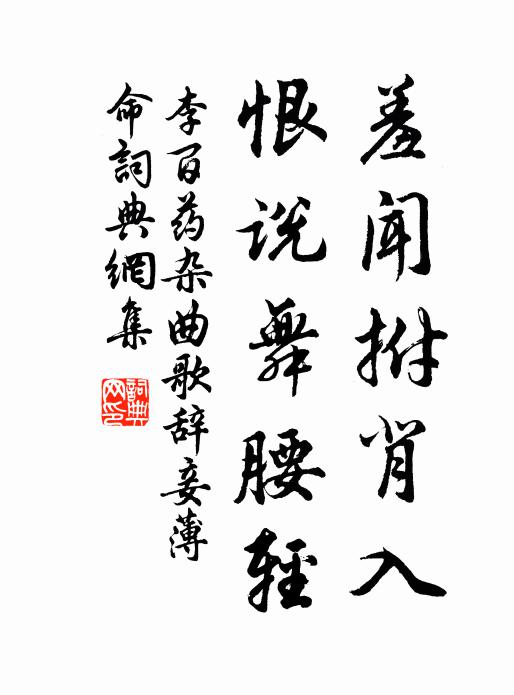 羞闻拊背入
恨说舞腰轻
李百药杂曲歌辞妾薄
命词典網集
詞典
网印